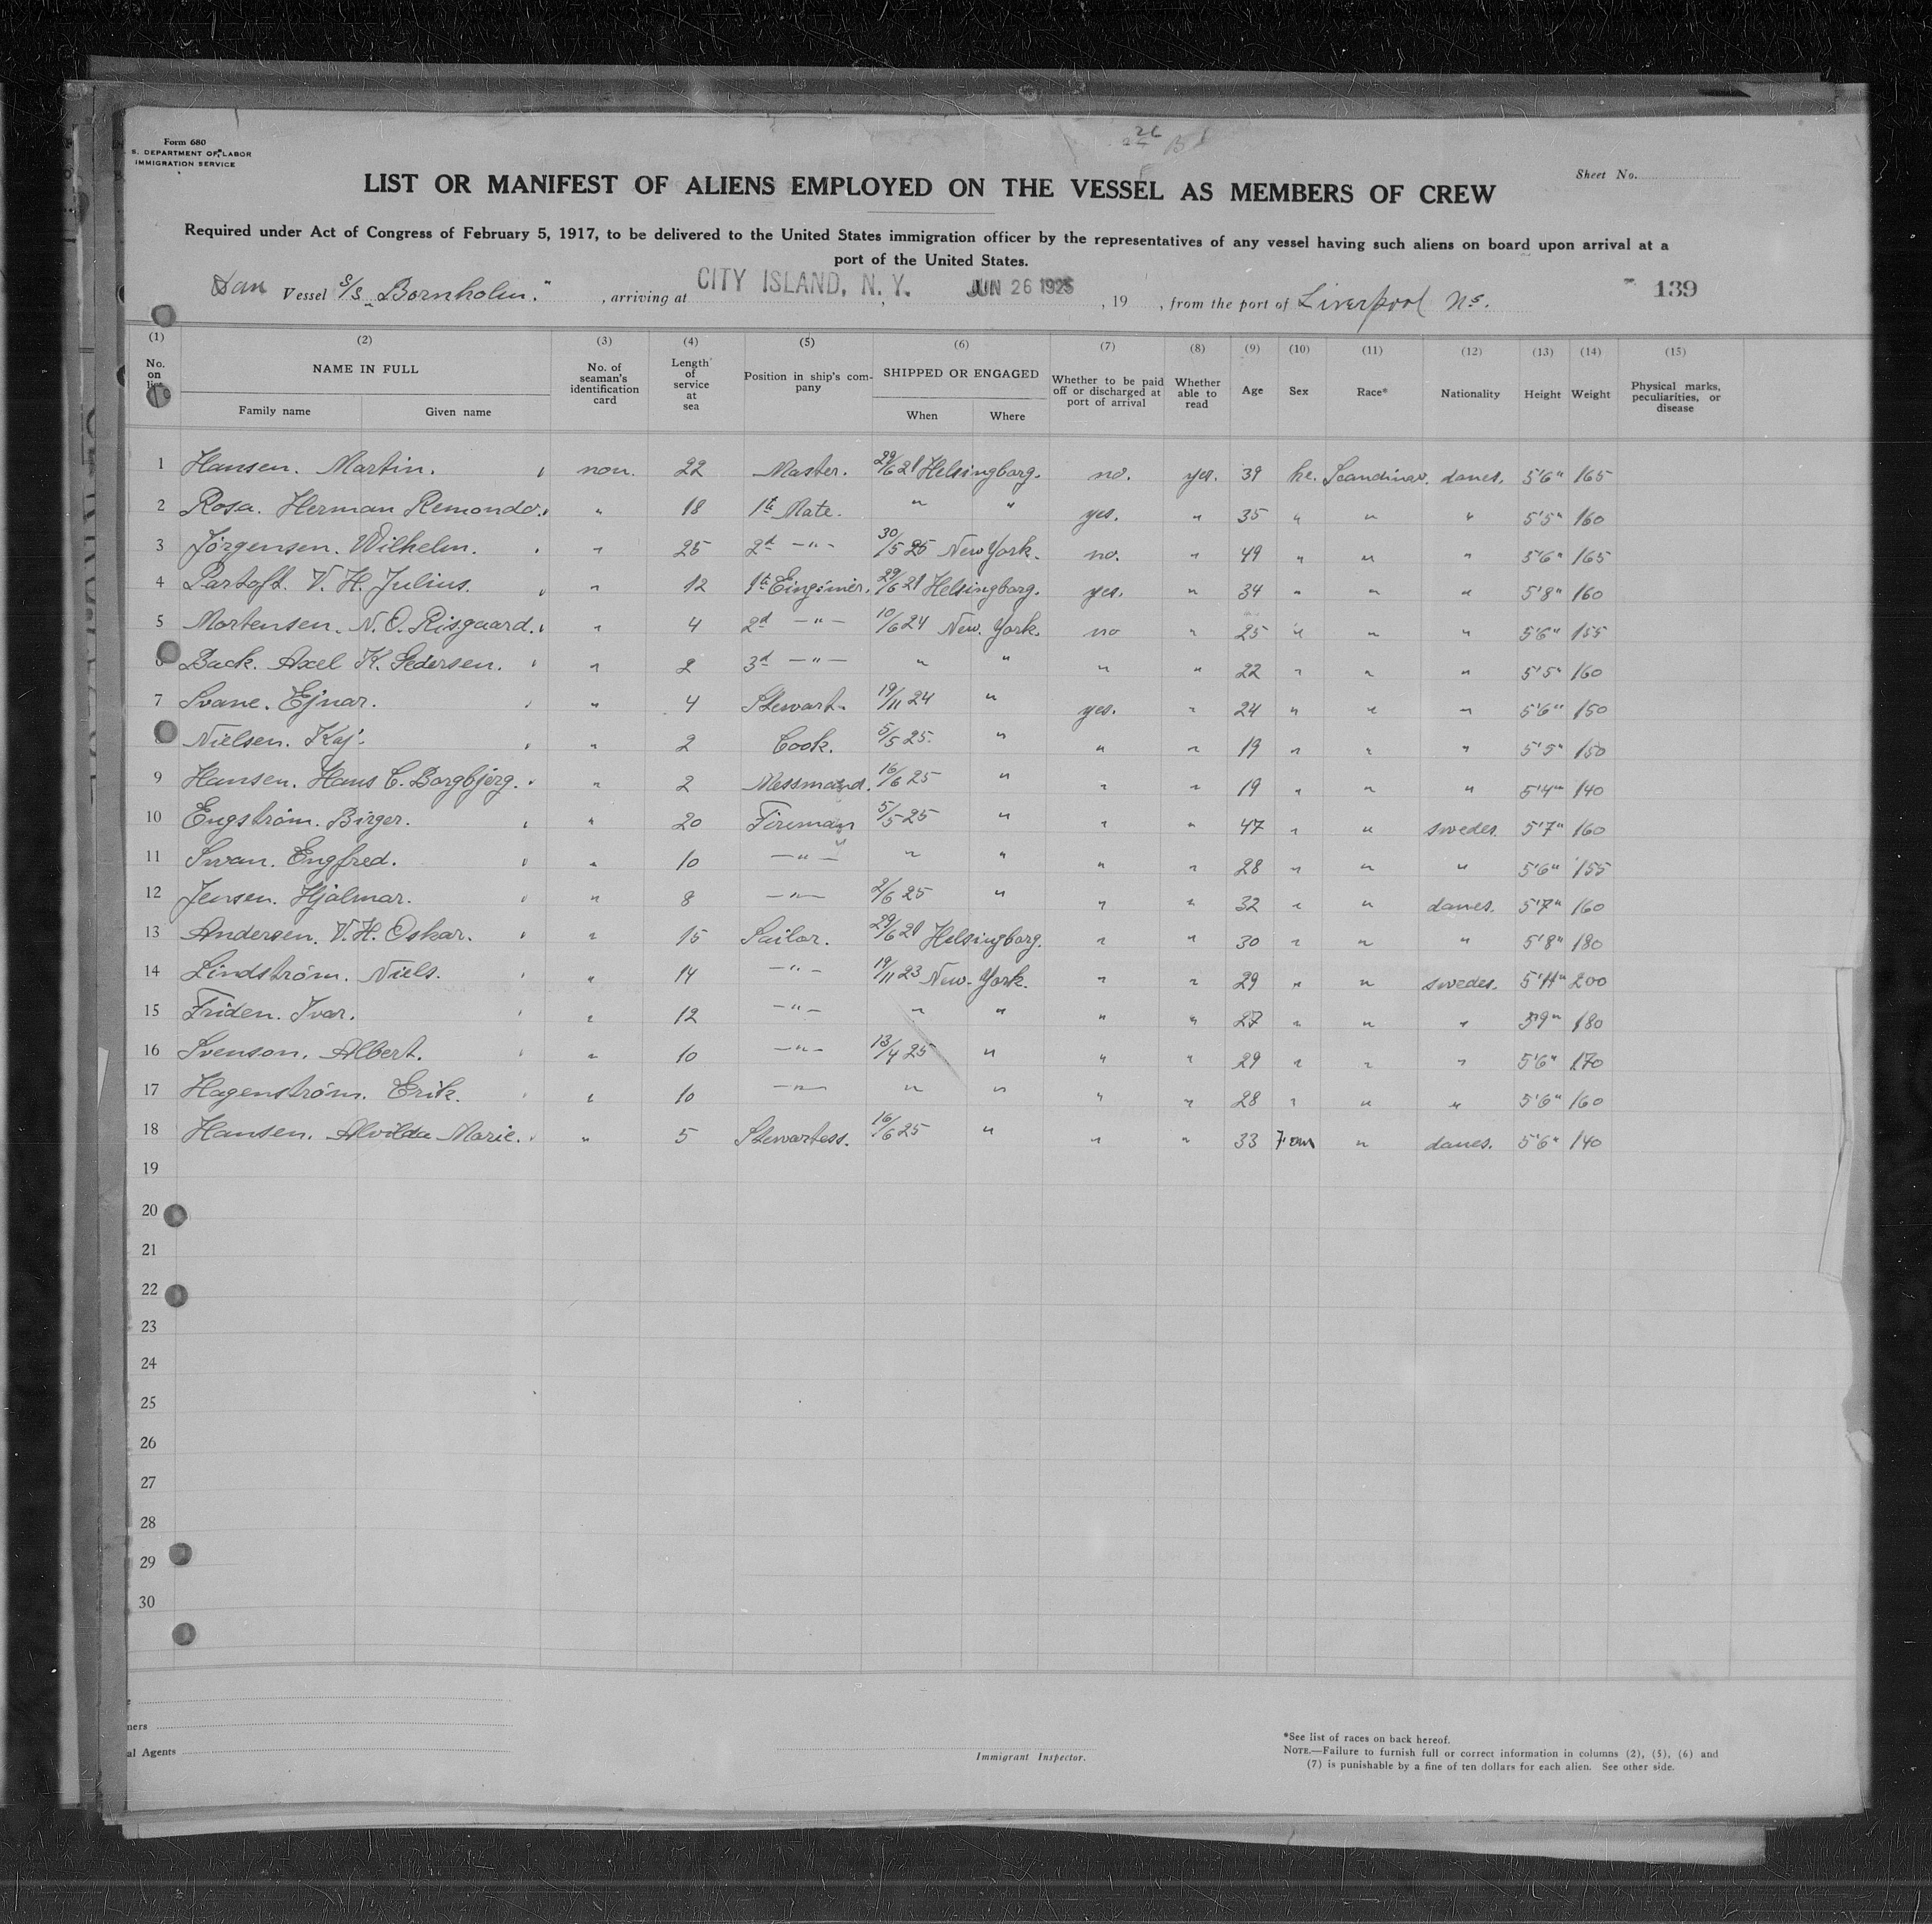 Form 680
S. DEPARTMENT OF LABOR
IMMIGRATION SERVICE
26
Sheet No.
LIST OR MANIFEST OF ALIENS EMPLOYED ON THE VESSEL AS MEMBERS OF CREW
Required under Act of Congress of February 5, 1917, to be delivered to the United States immigration officer by the representatives of any vessel having such aliens on board upon arrival at a
port of the United States.
Dan Vessel S/S "Bornholm." , arriving at CITY ISLAND, N. Y. JUN 26 1925 , 19 , from the port of Liverpool Ns. 139
(1) (2) (3) (4) (5) (6) (7) (8) (9) (10) (11) (12) (13) (14) (15)
No. on list NAME IN FULL Family name Given name No. of seaman's identification card Length of service at sea Position in ship's company SHIPPED OR ENGAGED When Where Whether to be paid off or discharged at port of arrival Whether able to read Age Sex Race* Nationality Height Weight Physical marks, peculiarities, or disease
1 Hansen. Martin. non. 22 Master. 29/6 21 Helsingborg. no. yes. 39 he. Scandinav. danes. 5'6" 165
2 Rosa. Herman Remondo. " 18 1st Mate. " " yes. " 35 " " " 5'5" 160
3 Jørgensen. Wilhelm. " 25 2d -"- 30/5 25 New York. no. " 49 " " " 5'6" 165
4 Partoft. V. H. Julius. " 12 1st Einginier. 29/6 21 Helsingborg. yes. " 34 " " " 5'8" 160
5 Mortensen. N. O. Risgaard. " 4 2d -"- 10/6 24 New. York. no " 25 " " " 5'6" 155
6 Back. Axel K. Pedersen. " 2 3d -"- " " " " 22 " " " 5'5" 160
7 Svane. Ejnar. " 4 Stewart. 19/11 24 " yes. " 24 " " " 5'6" 150
Nielsen. Kaj. " 2 Cook. 5/5 25. " " " 19 " " " 5'5" 150
9 Hansen. Hans C. Borgbjerg. " 2 16/6 25 " " " 19 " " " 5'4" 140
10 Engstrøm. Birger. " 20 Fireman 5/5 25 " " " 47 " " swedes. 5'7" 160
11 Swan. Engfred. " 10 -"- " " " " 28 " " " 5'6" 155
12 Jensen. Hjalmar. " 8 -"- 2/6 25 " " " 32 " " danes. 5'7" 160
13 Andersen. V. H. Oskar. " 15 Sailor. 29/6 21 Helsingborg. " " 30 " " " 5'8" 180
14 Lindstrøm. Niels. " 14 -"- 19/11 23 New. York. " " 29 " " swedes. 5'11" 200
15 Friden. Ivar. " 12 -"- " " " " 27 " " " 5'9" 180
16 Svenson. Albert. " 10 -"- 13/4 25 " " " 29 " " " 5'6" 170
17 Hagenstrøm. Erik. " 10 -"- " " " " 28 " " " 5'6" 160
18 Hansen. Alvilda Marie. " 5 Stewartess. 16/6 25 " " " 33 Fem " danes. 5'6" 140
19
20
21
22
23
24
25
26
27
28
29
30
ners
al Agents
Immigrant Inspector.
*See list of races on back hereof.
NOTE.—Failure to furnish full or correct information in columns (2), (5), (6) and
(7) is punishable by a fine of ten dollars for each alien. See other side.